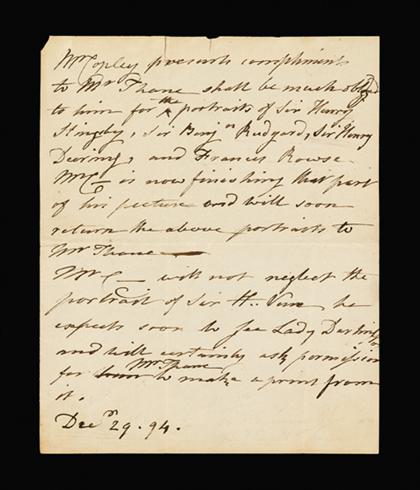 Mr Copley presents compliments
to Mr Thane shall be much oblgd
to him for the portraits of Sir Henry
Slingsby, Sir Benjn Rudyard, Sir Henry
Deering, and Francis Rowse.
Mr C— is now finishing that part
of his picture and will soon
return the above portraits to
Mr Thane —
Mr C— will not neglect the
portrait of Sir H.. Vane he
expects soon to see Lady Darlington
and will certainly ask permission
for Mr Thane to make a print from
it.
Decr 29. 94.